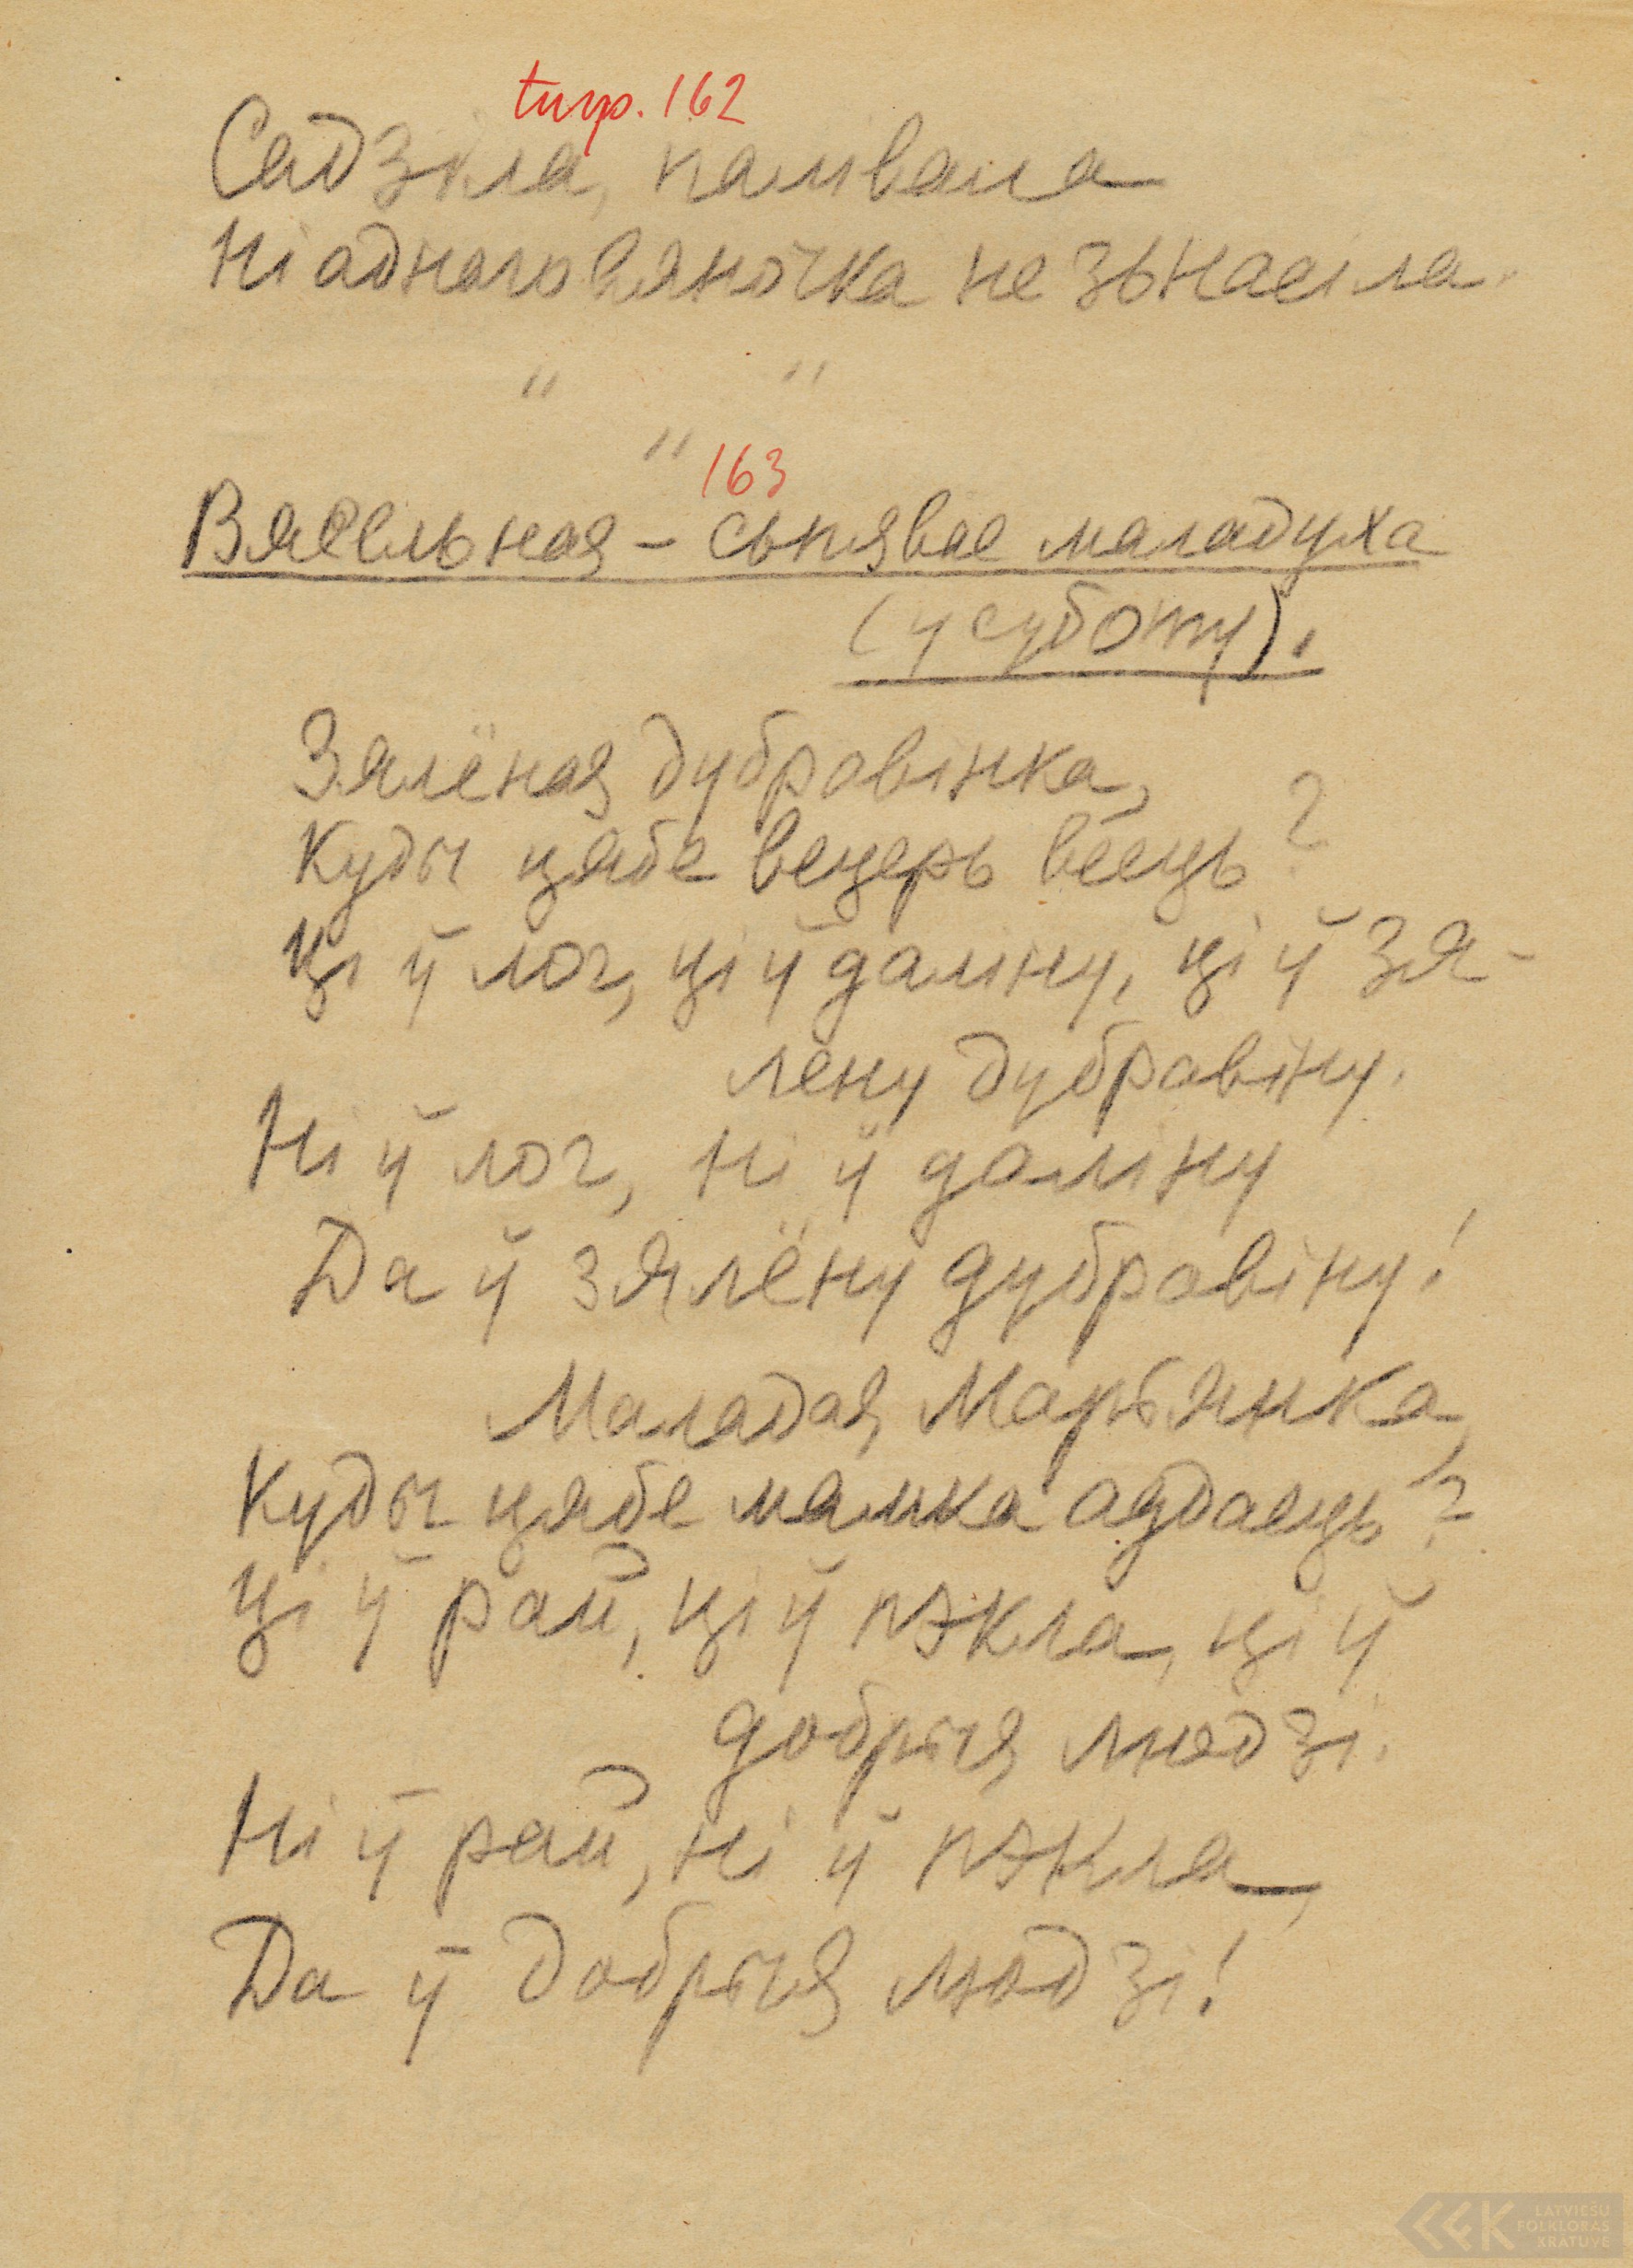 turp. 162
Садзіла, палівала
Ні аднаго вяночка не зьнасіла.
" "
"
163
Вясельная – сьпявае маладуха
(у суботу).
Зялёная дубровінка,
Куды цябе вецерь вёець?
Ці ў лог, ці ў даліну, ці ў зя-
лёну дубравіну.
Ні ў лог, ні ў даліну
Да ў зялёну дубравіну!
Маладая Марьянка,
Куды цябе мамка аддаець?
Ці ў рай, ці ў пэкла, ці ў
добрыя людзі.
Ні ў рай, ні ў пэкла,
Да ў добрыя людзі!
LATVIEŠU
FOLKLORAS
KRĀTUVE